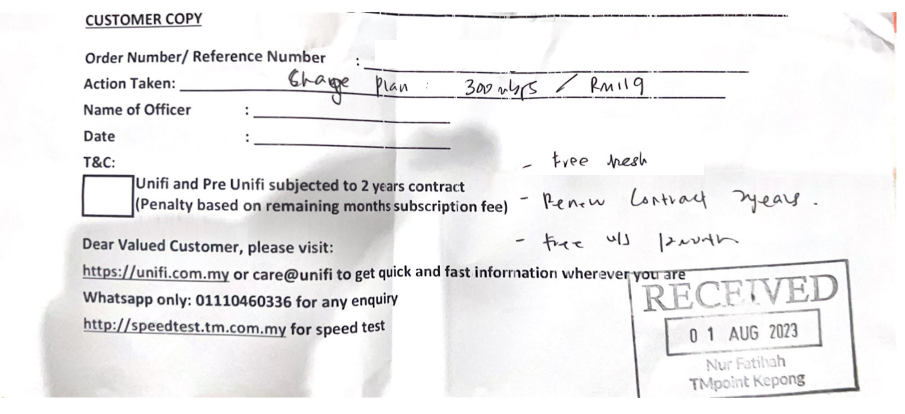 CUSTOMER COPY
Order Number/ Reference Number :
Action Taken: Change Plan : 300 mbps / RM119
Name of Officer :
Date :
T&C:
- free mesh
Unifi and Pre Unifi subjected to 2 years contract
(Penalty based on remaining months subscription fee)
- Renew Contract 2years.
- free 12 month
Dear Valued Customer, please visit:
https://unifi.com.my or care@unifi to get quick and fast information wherever you are
Whatsapp only: 01110460336 for any enquiry
http://speedtest.tm.com.my for speed test
RECEIVED
01 AUG 2023
Nur Fatihah
TMpoint Kepong